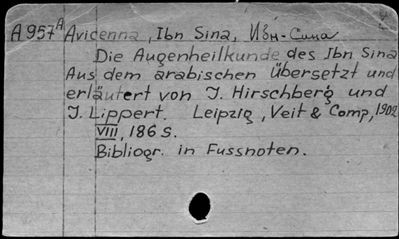 A 957 A Avicenna, Ibn Sina, Ибн-Сина
Die Augenheilkunde des Ibn Sina
Aus dem arabischen übersetzt und
erläutert von J. Hirschberg und
J. Lippert. Leipzig, Veit & Comp, 1902
VIII, 186 S.
Bibliogr. in Fussnoten.